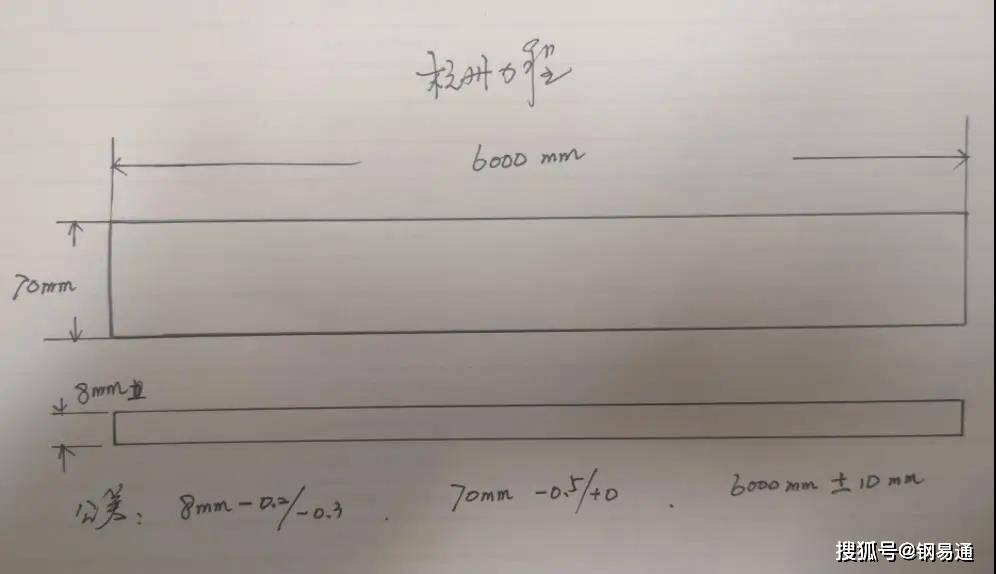 杭州力程
6000 mm
70mm
8mm
公差: 8mm -0.2/-0.3 . 70mm -0.5/+0 . 6000mm ±10mm
搜狐号@钢易通